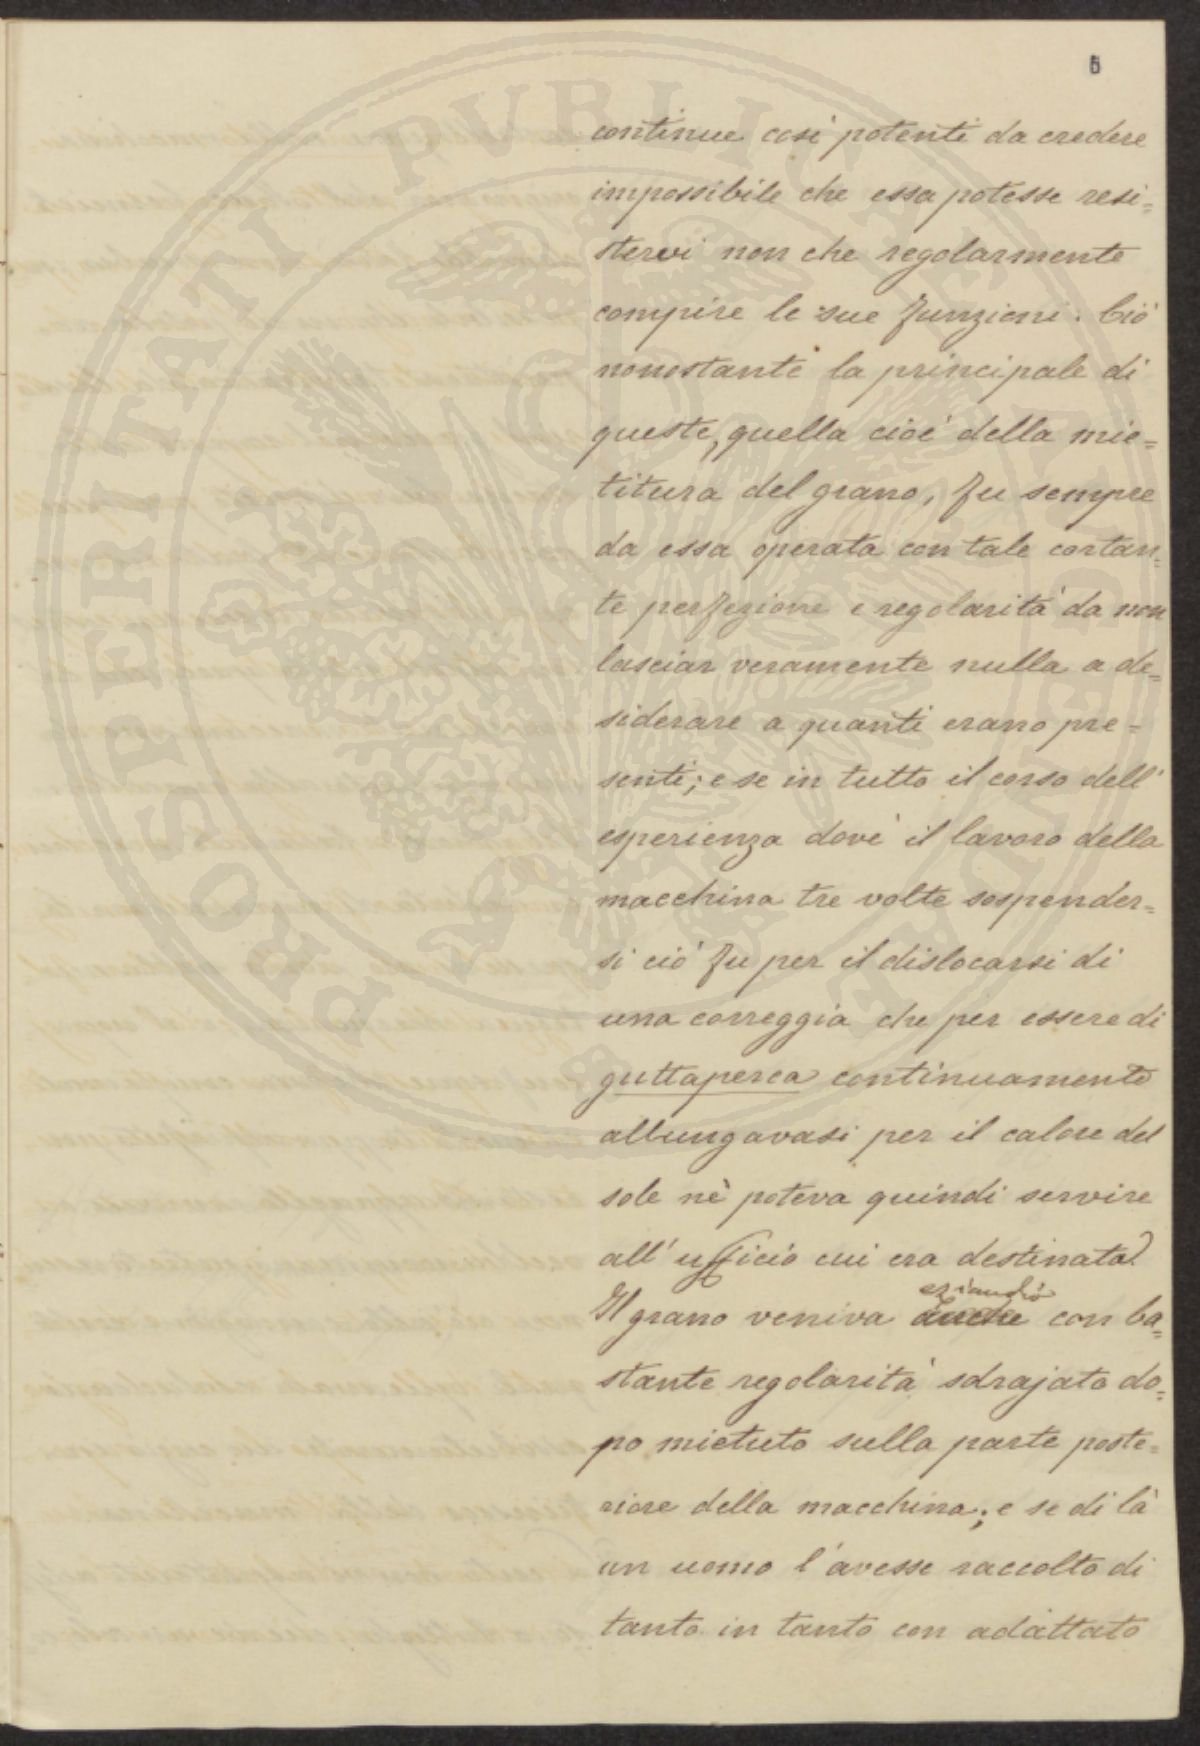 6
continue così potenti da credere
impossibile che essa potesse resi=
stervi non che regolarmente
compire le sue funzioni. Ciò
nonostante la principale di
queste, quella cioè della mie=
titura del grano, fu sempre
da essa operata con tale costan=
te perfezione e regolarità da non
lasciar veramente nulla a de=
siderare a quanti erano pre=
senti; e se in tutto il corso dell'
esperienza dovè il lavoro della
macchina tre volte sospender=
si ciò fu per il dislocarsi di
una correggia che per essere di
guttaperca continuamente
allungavasi per il calore del
sole nè poteva quindi servire
all'ufficio cui era destinata.
eziandio
Il grano veniva anche con ba=
stante regolarità sdrajato do=
po mietuto sulla parte poste=
riore della macchina; e se di là
un uomo l'avesse raccolto di
tanto in tanto con adattato
PROSPERITATI PVBLICAE AVGENDAE